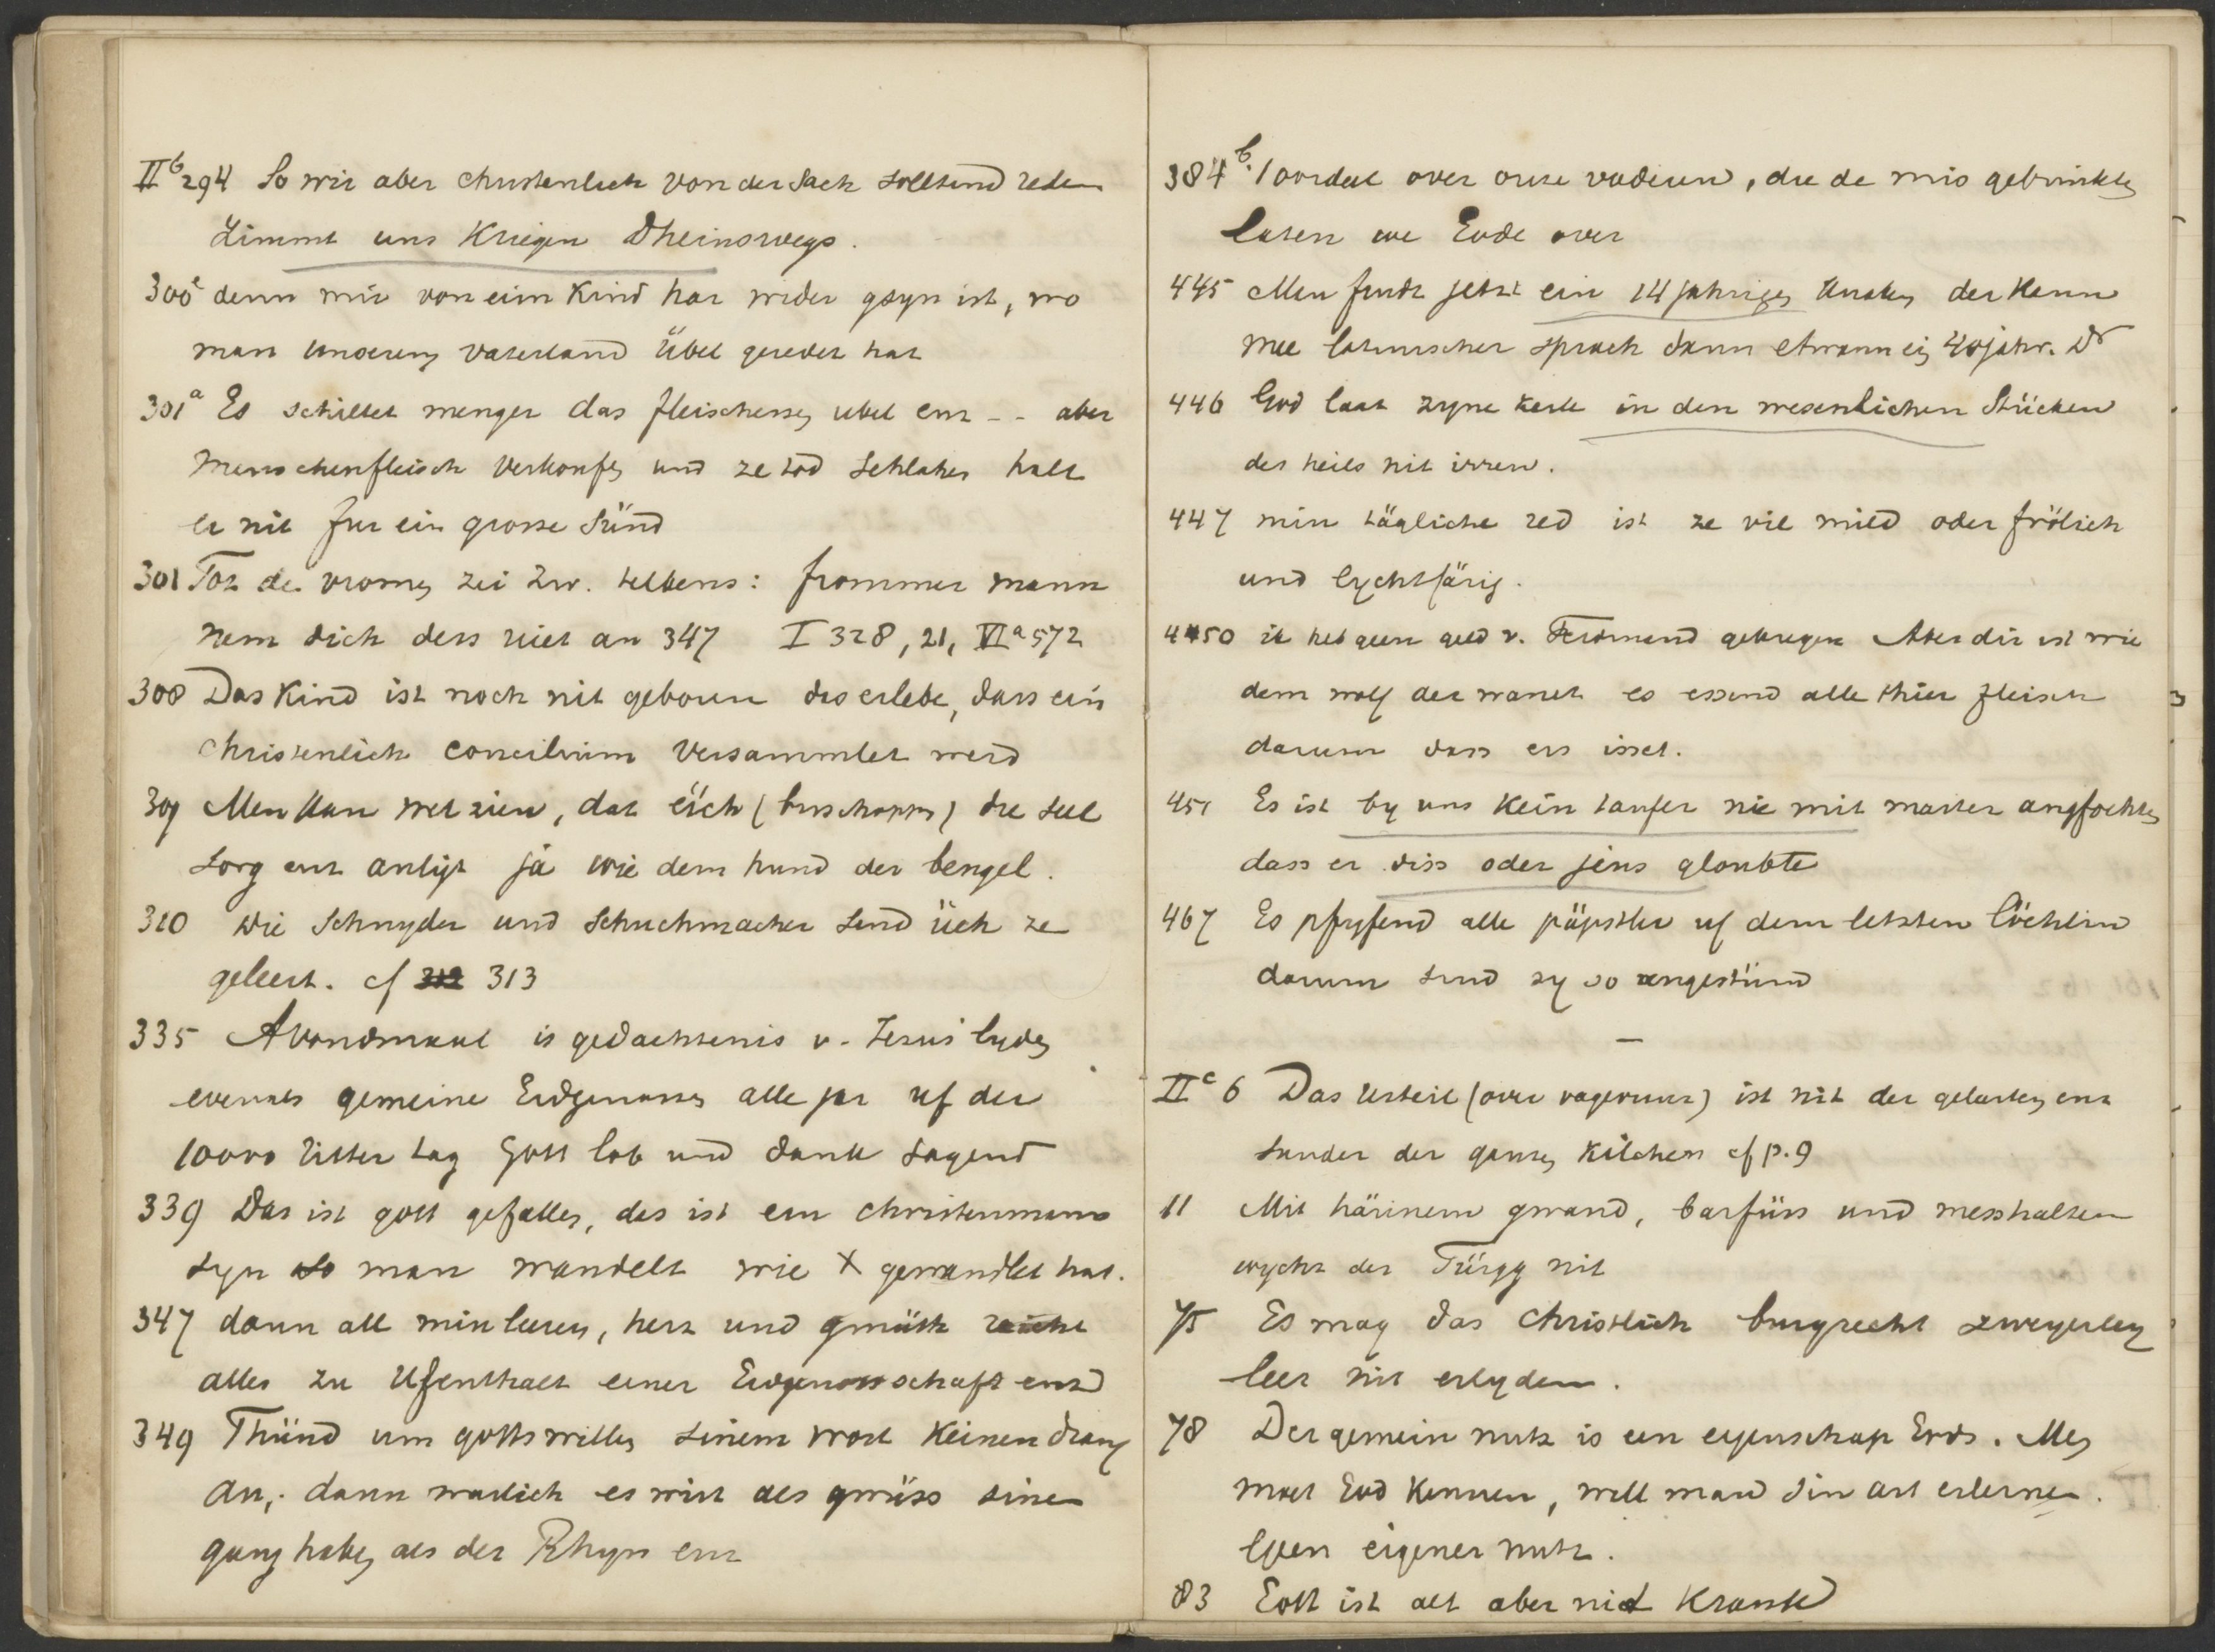 II b 294 So wir aber christenlich von der Sach solltend reden
zimmt uns Kriegen Dheinswegs.
300 a denn mir von eim Kind har wider gsyn ist, wo
man unserem vaterland Übel geredet hat
301 a Es schiltet menger das fleischessen übel enz -- aber
Menschenfleisch Verkoufen und ze tod schlahen halt
er nit für ein grosse Sünd
301 Tot de vromen zei Zw. telkens: frommer mann
nem dich dess niet an 347 I 328, 21, VI a 572
308 Das Kind ist noch nit geboren das erlebe, dass ein
Christenlich concilium Versammlet werd
309 Men kan wel zien, dat üch (bisschoppen) die seel
sorg enz anligt ja wie dem hund der bengel.
310 die Schnyder und Schuchmacher sind üch ze
geleert. cf 312 313
335 Avondmaal is gedachtenis v. Jezus' lyden
evenals gemeine Eidgenossen alle jar uf der
10000 Ritter tag Gott lob und dank sagend
339 Das ist gott gefallen, das ist ein christenmann
syn so man wandelt wie X gewandlet hat.
347 dann all min leeren, herz und gmüth reicht
alles zu Ufenthalt einer Eidgenossschaft enz
349 Thünd um gottswillen sinem wort Keinen drang
an,. dann warlich es wirt als gwüss sinen
gang haben als der Rhyn enz
384 b. 1 oordeel over onze vaderen, die de mis gebruikten
laten we Gode over
445 Men findt jetzt ein 14 jährigen Knaben der Kann
mee latinischer sprach dann etwann ein 40 jähr. Dr
446 God laat zyne kerk in den wesenlichen Stücken
des heils nit irren.
447 min tägliche red ist ze vil mild oder frölich
und lychtfärig.
450 ik heb geen geld v. Ferdinand gekregen Aber dir ist wie
dem wolf der wanet es essend alle thier fleisch
darum dass ers isset.
451 Es ist by uns Kein taufer nie mit marter angfochten
dass er diss oder jens gloubte
467 Es pfyfend alle päpstler uf dem letsten löchlin
darum sind sy so ungestüm
—
II c 6 Das Urteil (over vagevuur) ist nit der gelerten enz
sunder der ganzen Kilchen cf p. 9
11 Mit härinem gwand, barfüss und messhalten
wycht der Türgg nit
75 Es mag das Christlich burgrecht zweyerley
leer nit erlyden.
78 Der gemein nutz is een eigenschap Gods. Men
moet God Kennen, will man sin art erlernen.
geen eigener nutz.
83 Gott ist alt aber nid Krank